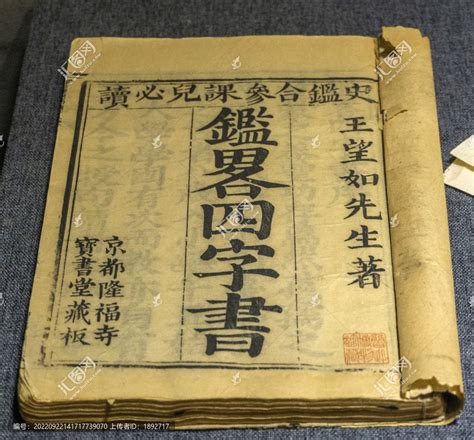 史鑑合參課兒必讀
王望如先生著
鑑畧四字書
京都隆福寺
寶書堂藏板
汇图网
编号：20220922141717739070 上传者ID：1892717